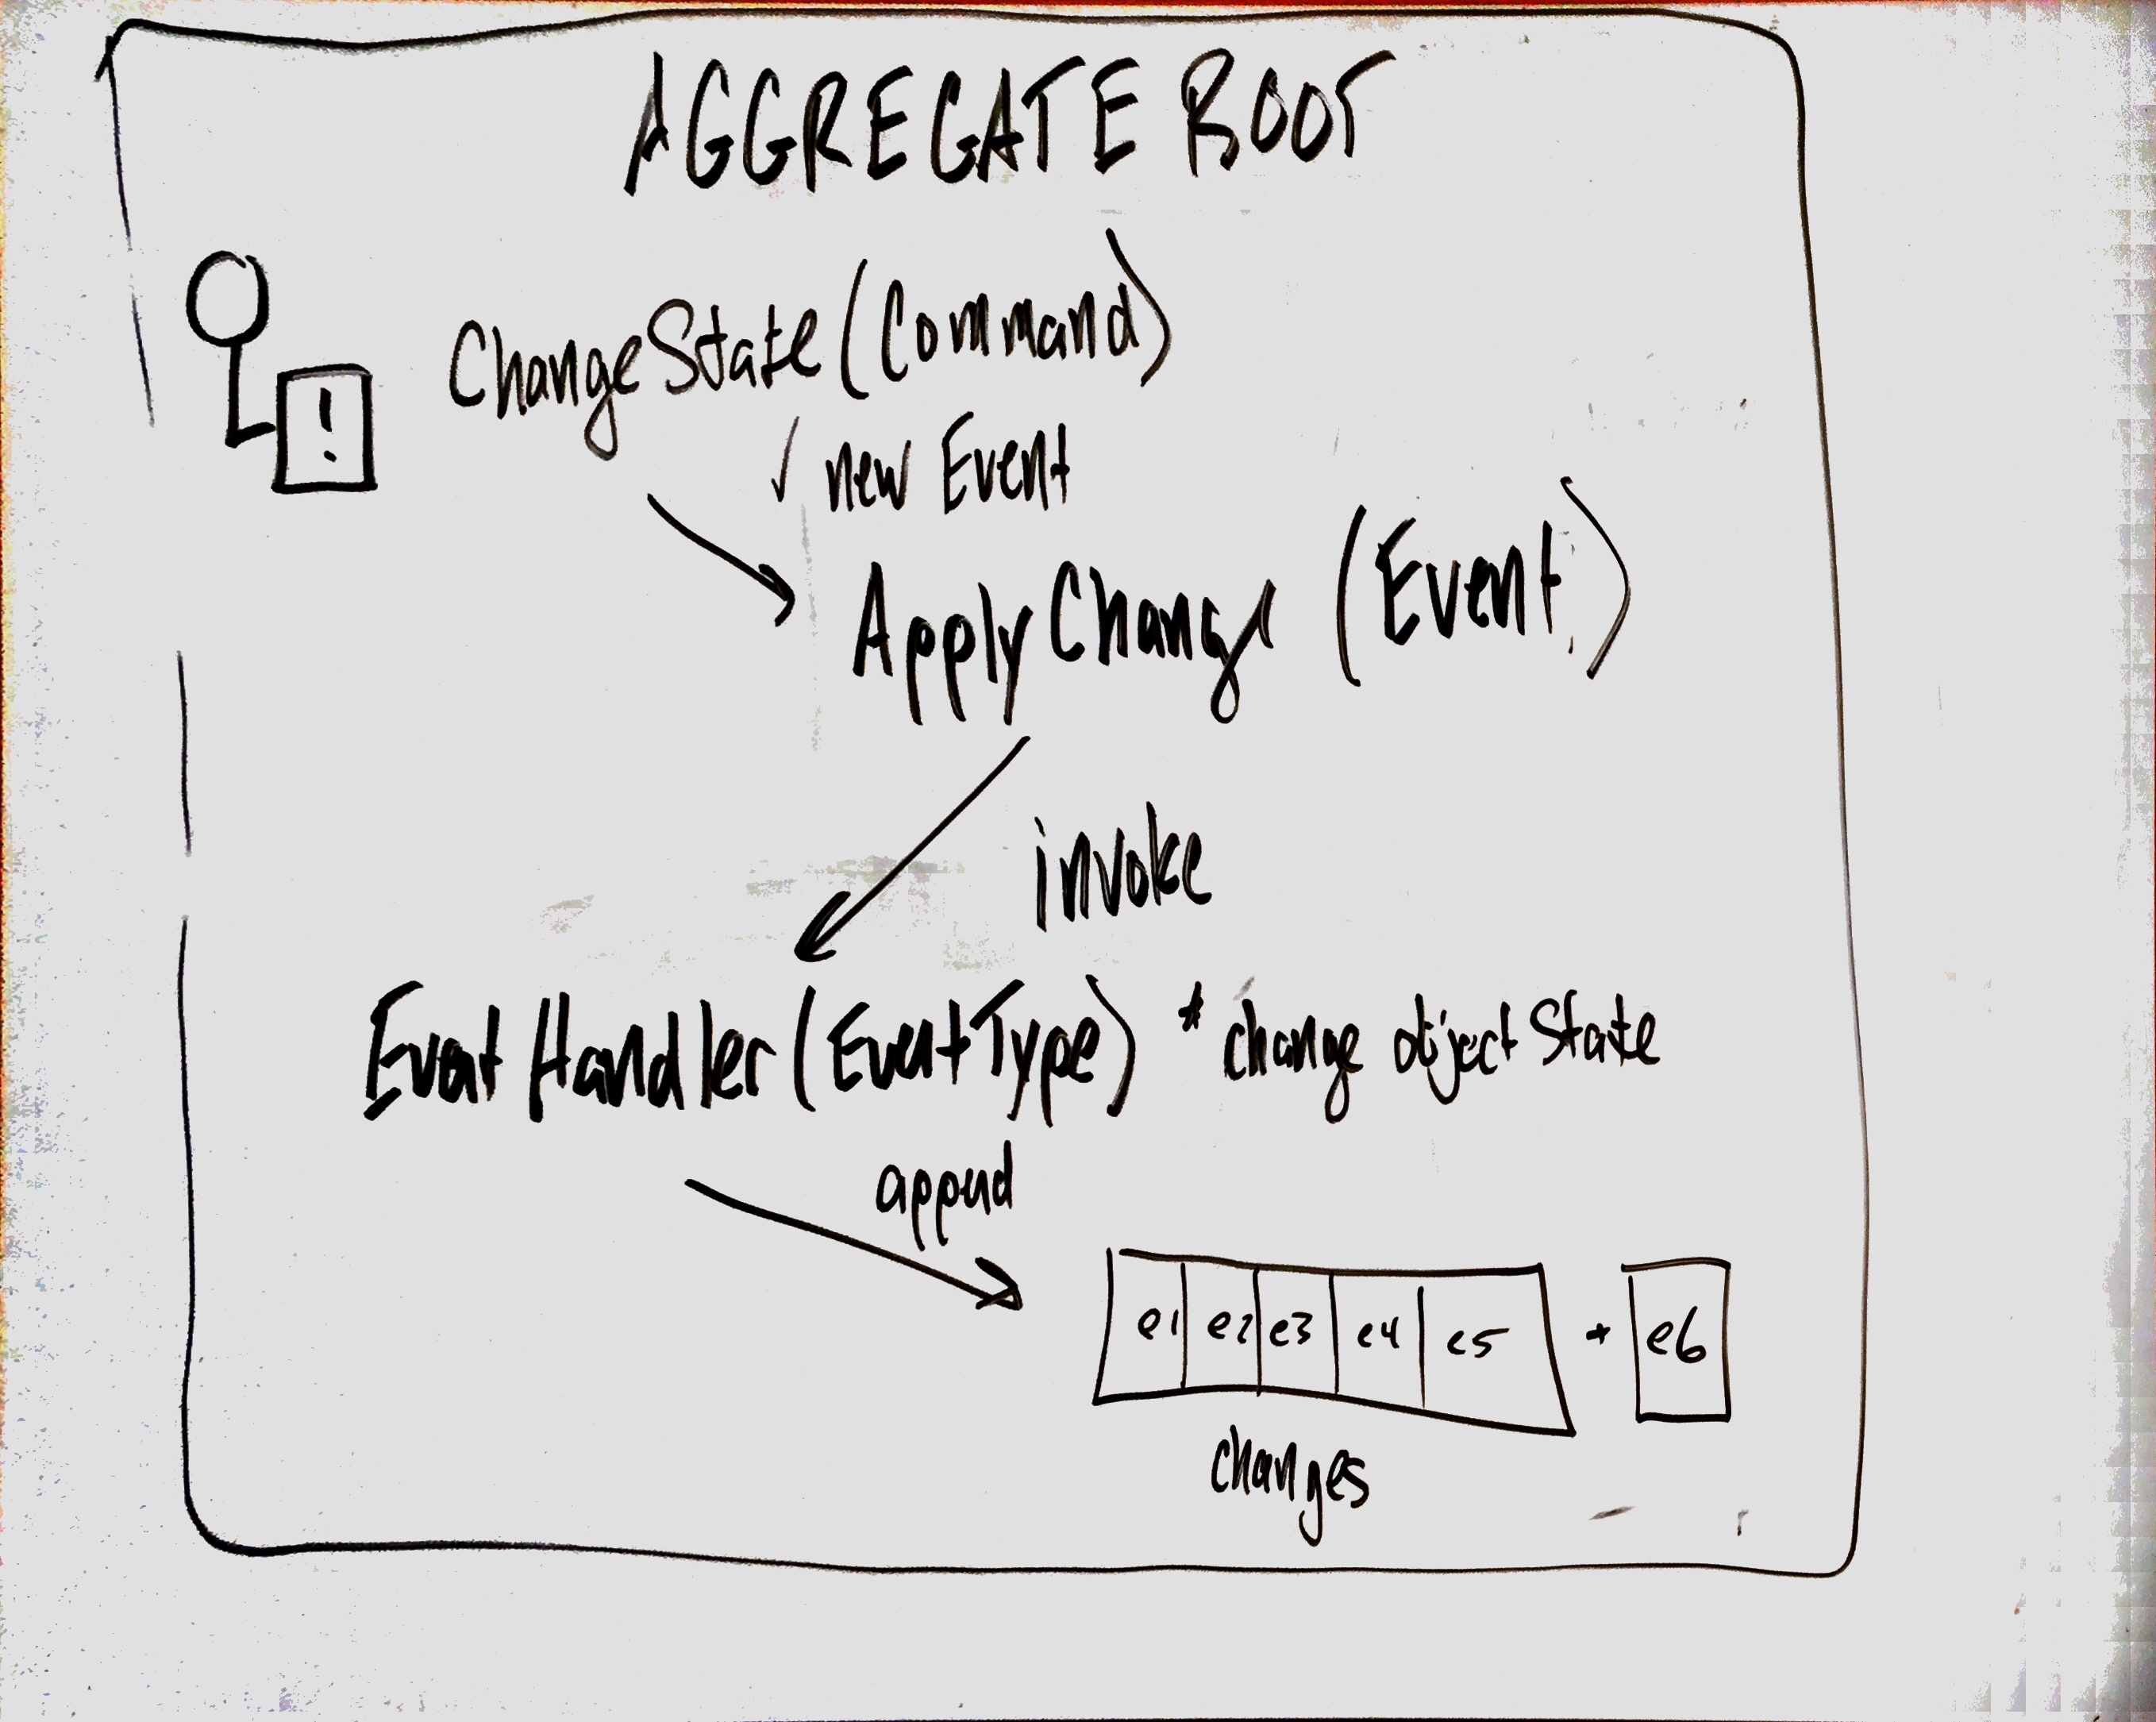 AGGREGATE ROOT
ChangeState (Command)
!
√ new Event
Apply Change (Event)
invoke
Event Handler (EventType) * change object State
append
e1 e2 e3 e4 e5 + e6
changes